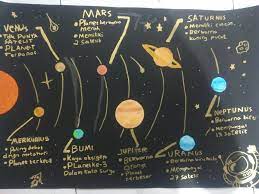 VENUS
Tak punya
satelit
PLANET
Terpanas
MARS
Planet berwarna
merah
Memiliki
2 satelit
SATURNUS
Memiliki cincin
Berwarna
kuning
NEPTUNUS
Berwarna biru
Mempunyai
13 satelit
MERKURIUS
Paling dekat
dengan matahari
Planet terkecil
BUMI
Kaya oksigen
Planet ke-3
Dalam tata surya
JUPITER
Berwarna
Planet
terbesar
URANUS
Berwarna biru
Mempunyai
27 satelit